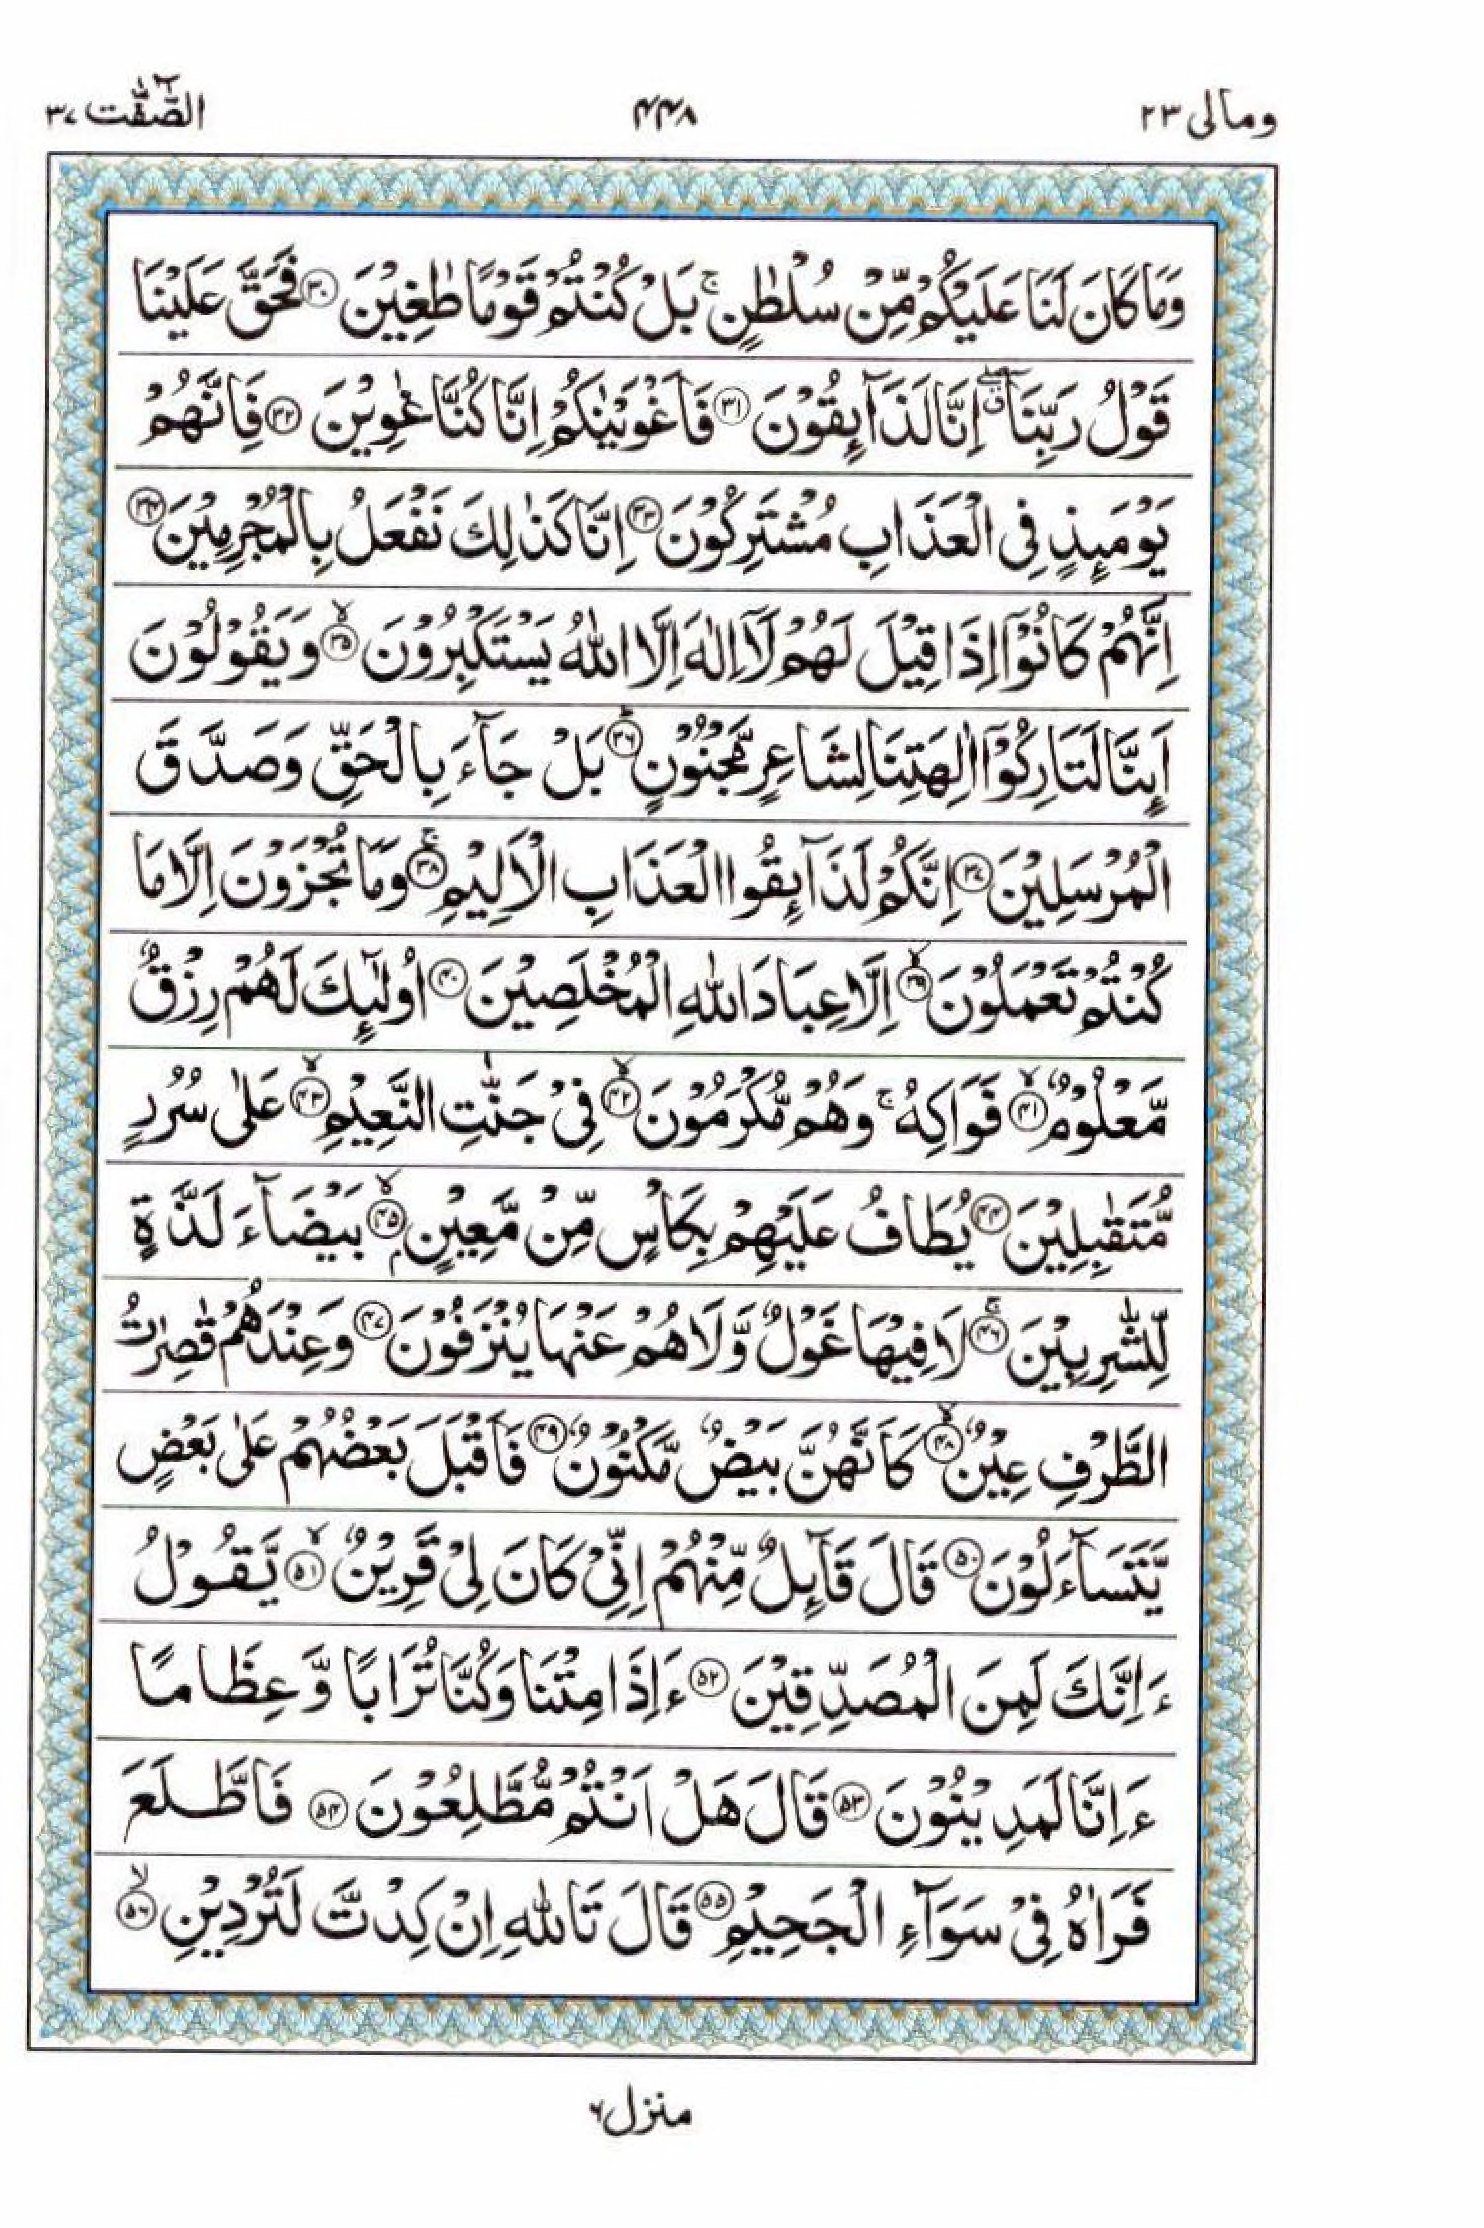 ومالی ۲۳
۴۴۸
الصّٰٓفّٰت ۳۷
وَمَا كَانَ لَنَا عَلَيْكُمْ مِّنْ سُلْطٰنٍ ۚ بَلْ كُنْتُمْ قَوْمًا طٰغِيْنَ ۝۳۰ فَحَقَّ عَلَيْنَا
قَوْلُ رَبِّنَآ ۖ اِنَّا لَذَآئِقُوْنَ ۝۳۱ فَاَغْوَيْنٰكُمْ اِنَّا كُنَّا غٰوِيْنَ ۝۳۲ فَاِنَّهُمْ
يَوْمَئِذٍ فِى الْعَذَابِ مُشْتَرِكُوْنَ ۝۳۳ اِنَّا كَذٰلِكَ نَفْعَلُ بِالْمُجْرِمِيْنَ ۝۳۴
اِنَّهُمْ كَانُوْٓا اِذَا قِيْلَ لَهُمْ لَآ اِلٰهَ اِلَّا اللّٰهُ يَسْتَكْبِرُوْنَ ۝۳۵ۙ وَيَقُوْلُوْنَ
اَئِنَّا لَتَارِكُوْٓا اٰلِهَتِنَا لِشَاعِرٍ مَّجْنُوْنٍ ۝۳۶ؕ بَلْ جَآءَ بِالْحَقِّ وَصَدَّقَ
الْمُرْسَلِيْنَ ۝۳۷ اِنَّكُمْ لَذَآئِقُوا الْعَذَابِ الْاَلِيْمِ ۝۳۸ۚ وَمَا تُجْزَوْنَ اِلَّا مَا
كُنْتُمْ تَعْمَلُوْنَ ۝۳۹ۙ اِلَّا عِبَادَ اللّٰهِ الْمُخْلَصِيْنَ ۝۴۰ اُولٰٓئِكَ لَهُمْ رِزْقٌ
مَّعْلُوْمٌ ۝۴۱ۙ فَوَاكِهُ ۚ وَهُمْ مُّكْرَمُوْنَ ۝۴۲ۙ فِىْ جَنّٰتِ النَّعِيْمِ ۝۴۳ۙ عَلٰى سُرُرٍ
مُّتَقٰبِلِيْنَ ۝۴۴ يُطَافُ عَلَيْهِمْ بِكَاْسٍ مِّنْ مَّعِيْنٍۭ ۝۴۵ۙ بَيْضَآءَ لَذَّةٍ
لِّلشّٰرِبِيْنَ ۝۴۶ۚ لَا فِيْهَا غَوْلٌ وَّلَا هُمْ عَنْهَا يُنْزَفُوْنَ ۝۴۷ وَعِنْدَهُمْ قٰصِرٰتُ
الطَّرْفِ عِيْنٌ ۝۴۸ۙ كَاَنَّهُنَّ بَيْضٌ مَّكْنُوْنٌ ۝۴۹ فَاَقْبَلَ بَعْضُهُمْ عَلٰى بَعْضٍ
يَّتَسَآءَلُوْنَ ۝۵۰ قَالَ قَآئِلٌ مِّنْهُمْ اِنِّىْ كَانَ لِىْ قَرِيْنٌ ۝۵۱ۙ يَّقُوْلُ
ءَاِنَّكَ لَمِنَ الْمُصَدِّقِيْنَ ۝۵۲ ءَاِذَا مِتْنَا وَكُنَّا تُرَابًا وَّعِظَامًا
ءَاِنَّا لَمَدِيْنُوْنَ ۝۵۳ قَالَ هَلْ اَنْتُمْ مُّطَّلِعُوْنَ ۝۵۴ فَاطَّلَعَ
فَرَاٰهُ فِىْ سَوَآءِ الْجَحِيْمِ ۝۵۵ قَالَ تَاللّٰهِ اِنْ كِدْتَّ لَتُرْدِيْنِ ۝۵۶ۙ
منزل ۶